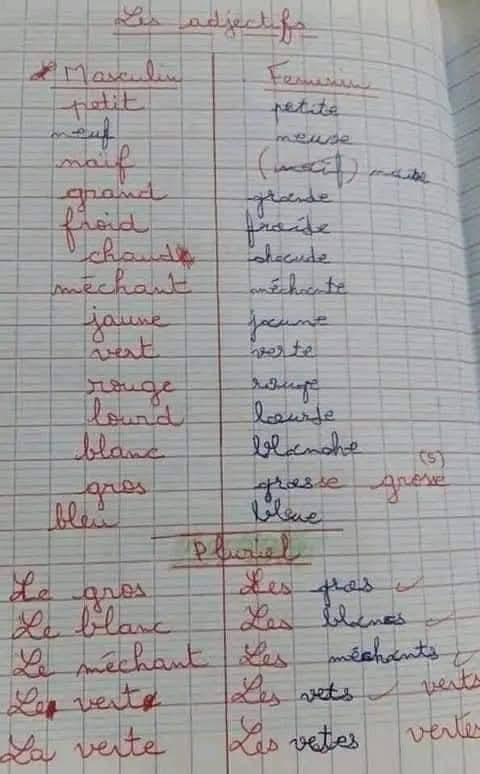 Les adjectifs
Masculin Feminin
petit petite
neuf neuse
naïf (naïf)
grand grande
froid froide
chaud chaude
méchant méchante
jaune jaune
vert verte
rouge rouge
lourd lourde
blanc blanche
(s)
gros grosse grosse
bleu bleue
Pluriel
Le gros Les gros ✓
Le blanc Les blancs ✓
Le méchant Les méchants ✓
Le vert Les vets ✓ verts
La verte Les vetes vertes